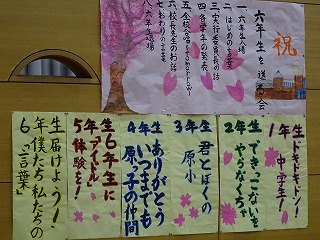 祝
六年生を送る会
一、六年生入場
二、はじめの言葉
三、実行委員長の話
四、各学年の発表
五、全校合唱
六、校長先生のお話
七、おわりの言葉
八、六年生退場
1年生
ドキドキドン!
中学生!
2年生
できっこないを
やらなくちゃ
3年生
君とぼくの
原小
4年生
ありがとう
いつまでも
原っ子の仲間
5年生
6年生に
"アイドル"
体験を!
6年生
届けよう!
僕たち私たちの
「言葉」